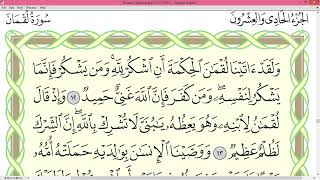 الجزء الحادى والعشرون
سورة لقمان
ولقد ءاتينا لقمن الحكمة أن اشكر لله ومن يشكر فإنما
يشكر لنفسه ومن كفر فإن الله غني حميد ١٢ وإذ قال
لقمن لابنه وهو يعظه يبني لا تشرك بالله إن الشرك
لظلم عظيم ١٣ ووصينا الإنسن بولديه حملته أمه